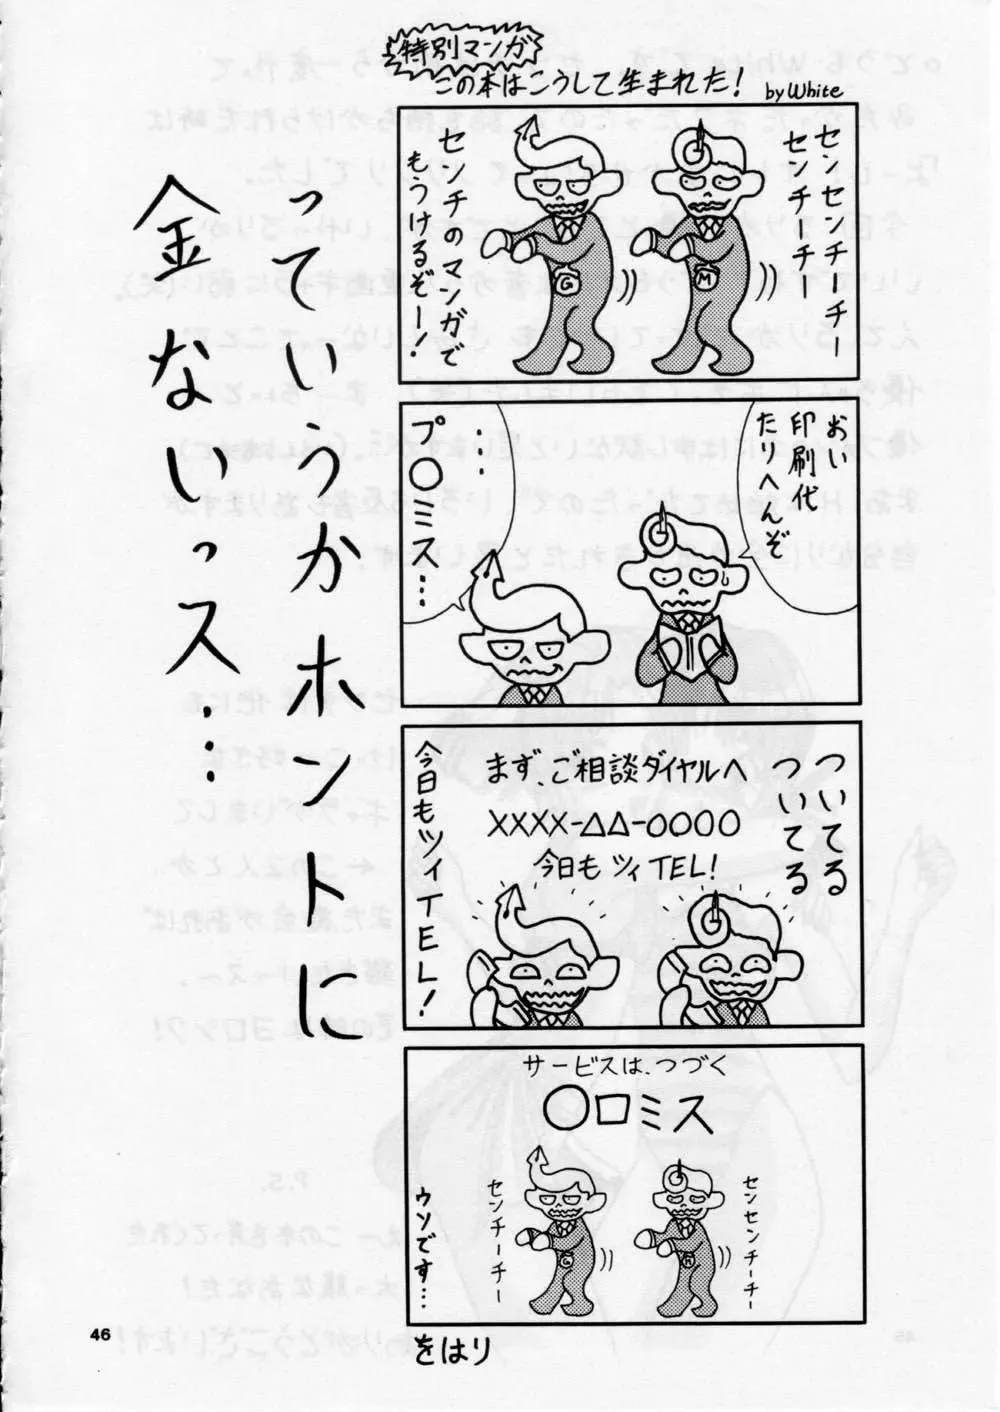 特別マンガ
この本はこうして生まれた!
by White
センセンチーチー
センチーチー
センチのマンガで
もうけるぞー!
G
M
おい
印刷代
たりへんぞ
…
プ○ミス…
ついてる
ついてる
まず、ご相談ダイヤルへ
XXXX-△△-○○○○
今日もツイTEL!
今日もツイTEL!
サービスは、つづく
○ロミス
センセンチーチー
センチーチー
G
M
ウソです…
をはり
っていうかホントに
金ないっス…
46